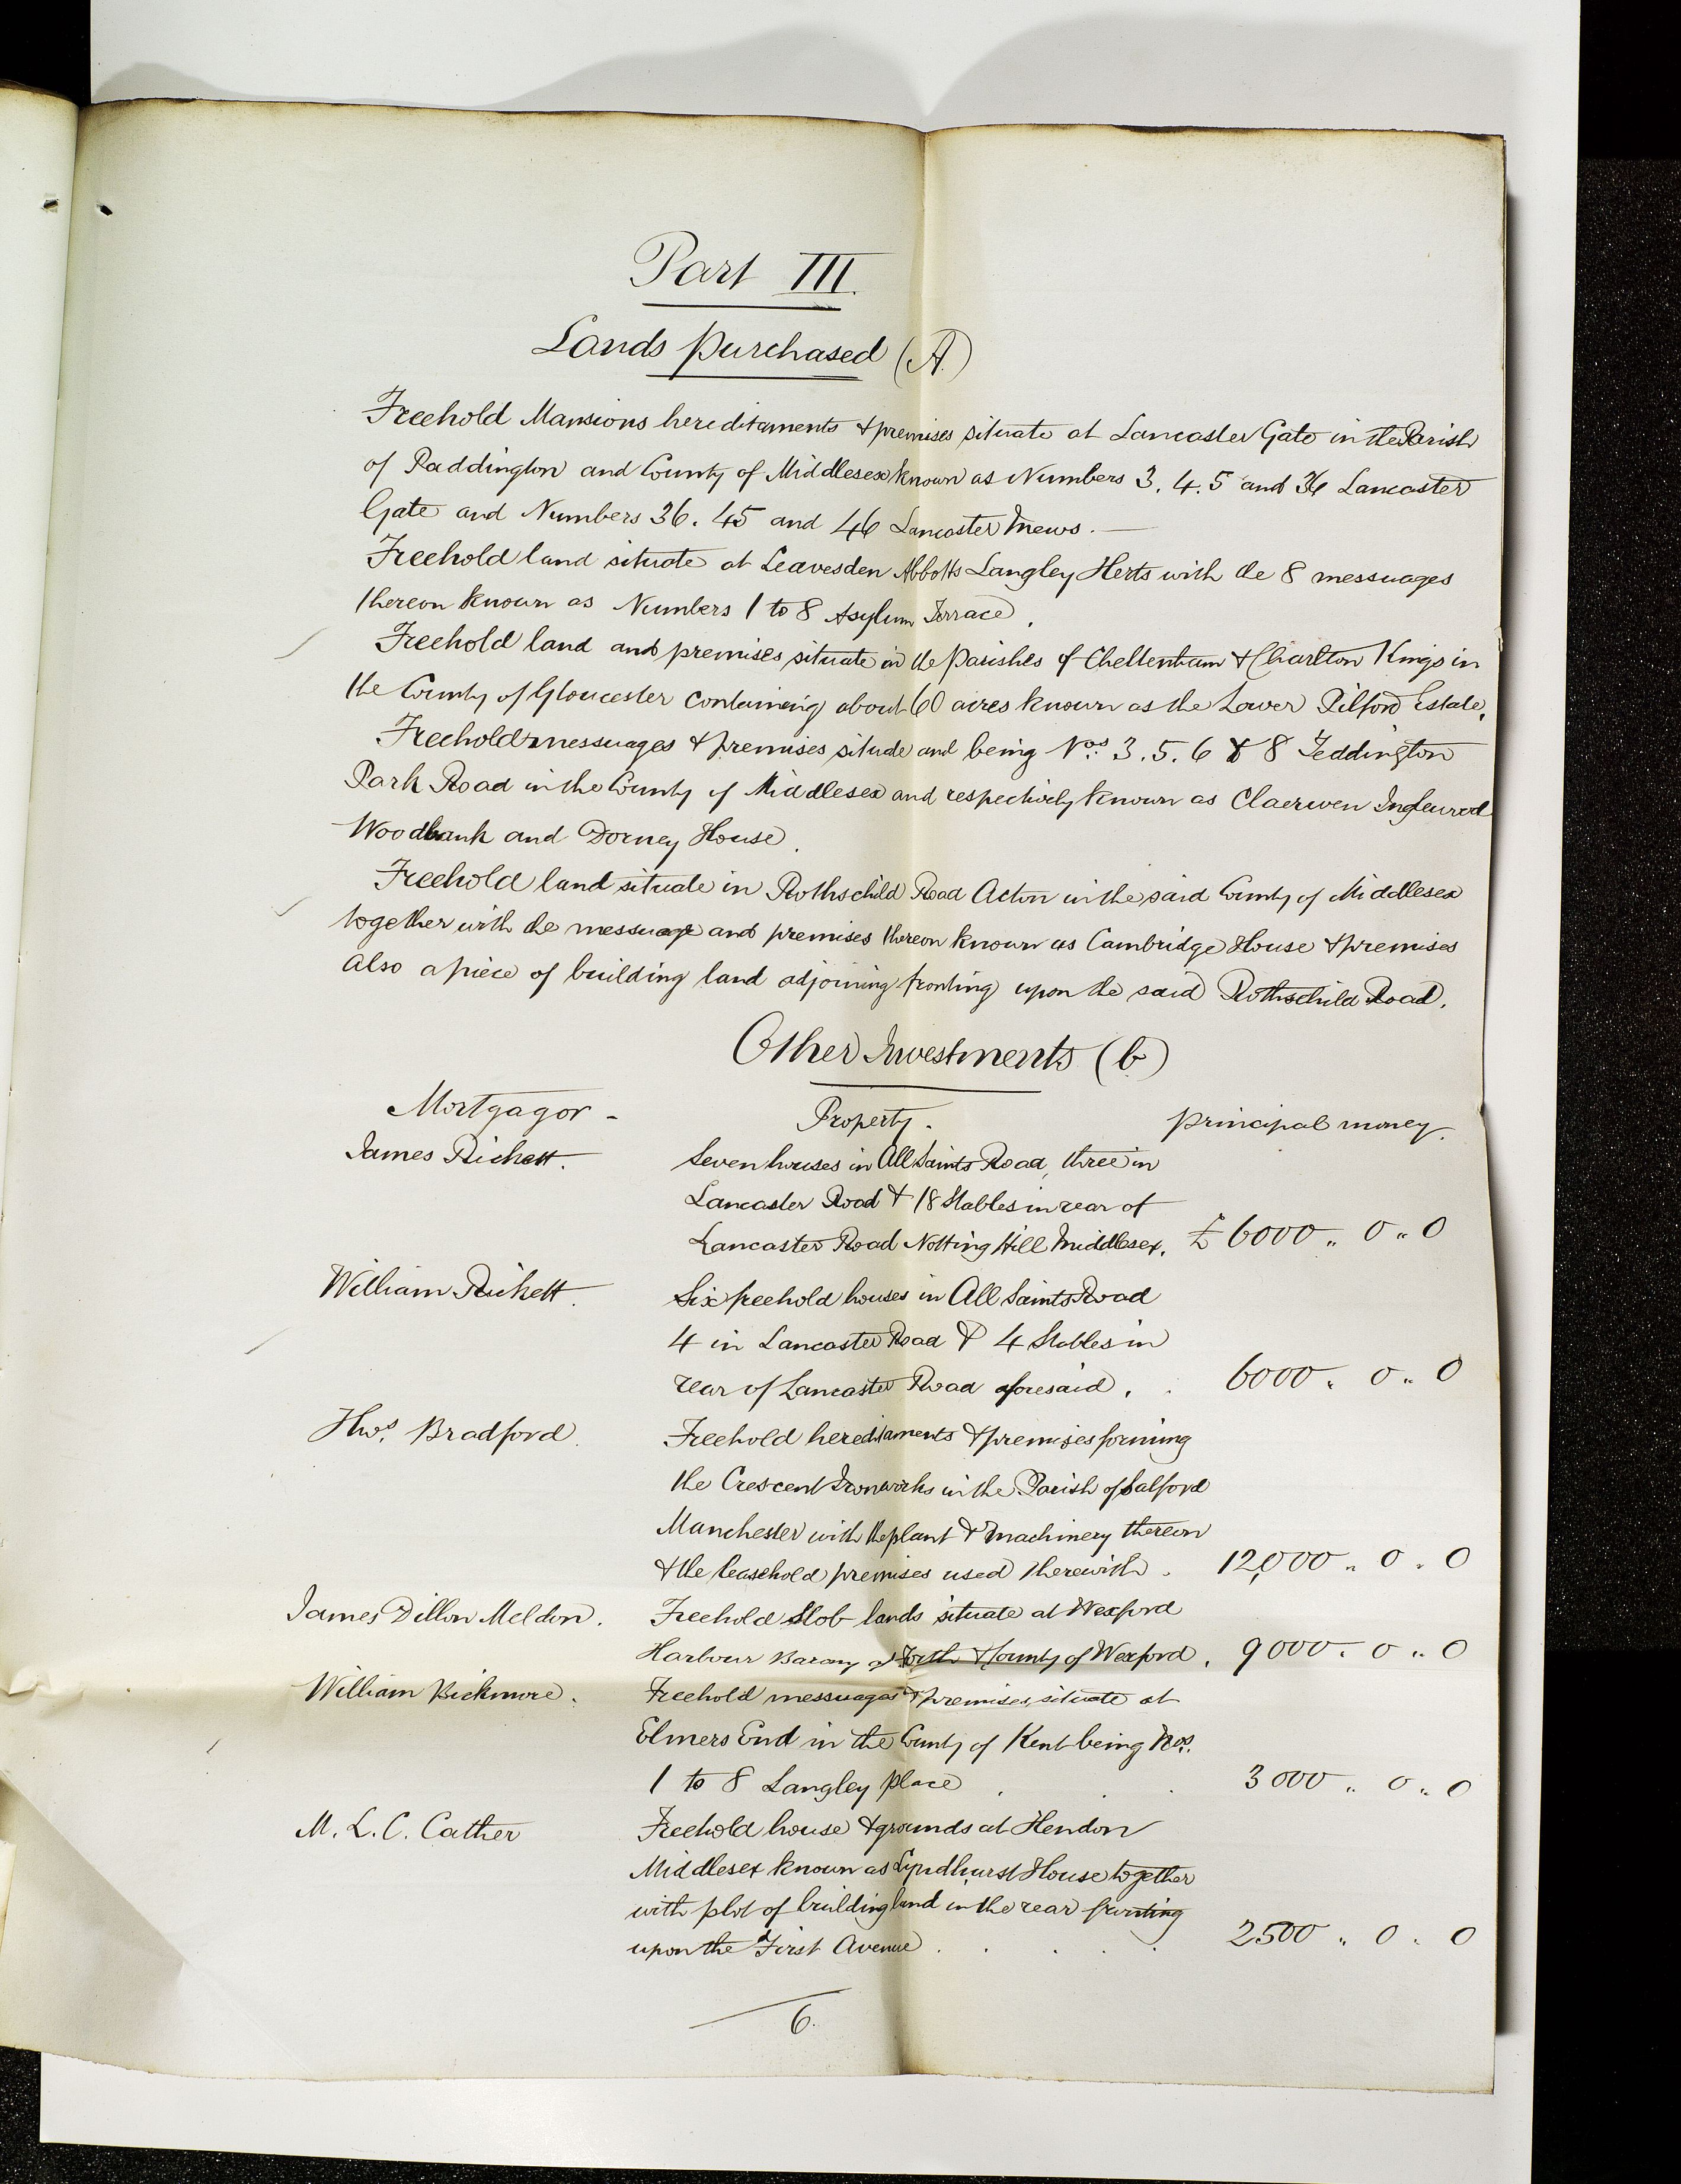 Part III.
Lands purchased (A.)
Freehold Mansions hereditaments & premises situate at Lancaster Gate in the Parish
of Paddington and County of Middlesex known as Numbers 3. 4. 5 and 36 Lancaster
Gate and Numbers 36. 45 and 46 Lancaster Mews. —
Freehold land situate at Leavesden Abbotts Langley Herts with the 8 messuages
thereon known as Numbers 1 to 8 Asylum Terrace.
Freehold land and premises situate in the Parishes of Cheltenham & Charlton Kings in
the County of Gloucester containing about 60 acres known as the Lower Pilford Estate.
Freehold messuages & premises situate and being Nos. 3. 5. 6 & 8 Teddington
Park Road in the County of Middlesex and respectively known as Claerwen
Woodbank and Dorney House.
Freehold land situate in Rothschild Road Acton in the said County of Middlesex
together with the messuage and premises thereon known as Cambridge House & premises
Also a piece of building land adjoining fronting upon the said Rothschild Road.
Other Investments (b)
Mortgagor - Property. principal money.
James Rickett. Seven houses in All Saints Road, three in
Lancaster Road & 18 Stables in rear of
Lancaster Road Notting Hill Middlesex. £ 6000 " 0 " 0
William Rickett. Six freehold houses in All Saints Road
4 in Lancaster Road & 4 Stables in
rear of Lancaster Road aforesaid. . 6000 " 0 " 0
Thos. Bradford. Freehold hereditaments & premises forming
the Crescent Ironworks in the Parish of Salford
Manchester with the plant & machinery thereon
& the leasehold premises used therewith. 12,000 " 0 " 0
James Dillon Meldon. Freehold Slob lands situate at Wexford
Harbour Barony of Forth & County of Wexford. 9000 " 0 " 0
William Bickmore. Freehold messuages & premises situate at
Elmers End in the County of Kent being Nos.
1 to 8 Langley place . . 3000 " 0 " 0
M. L. C. Cather Freehold house & grounds at Hendon
Middlesex known as Lyndhurst House together
with plot of building land in the rear fronting
upon the First Avenue . . . . . 2500 " 0 " 0
6.